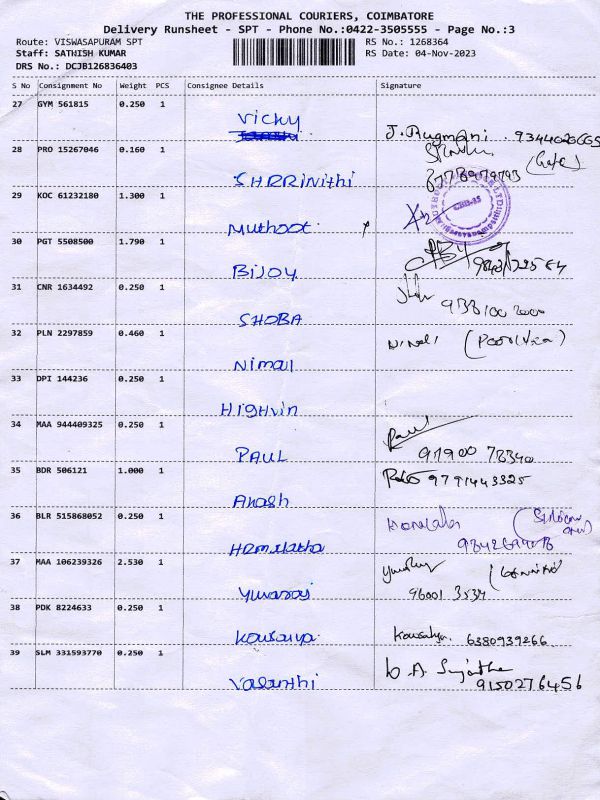 THE PROFESSIONAL COURIERS, COIMBATORE
Delivery Runsheet - SPT - Phone No.:0422-3505555 - Page No.:3
Route: VISWASAPURAM SPT RS No.: 1268364
Staff: SATHISH KUMAR RS Date: 04-Nov-2023
DRS No.: DCJB126836403
S No Consignment No Weight PCS Consignee Details Signature
27 GYM 561815 0.250 1
Vicky
J. Rugmani.
28 PRO 15267046 0.160 1
SHRRinithi
29 KOC 61232180 1.300 1
Muthoot
30 PGT 5508500 1.790 1
BIJOY
31 CNR 1634492 0.250 1
SHOBA
32 PLN 2297859 0.460 1
Nimall
33 DPI 144236 0.250 1
HIGHVIN
34 MAA 944409325 0.250 1 Paul
PAUL 97900 78340
35 BDR 506121 1.000 1 9791443325
Akash
36 BLR 515868052 0.250 1
Hemalatha
37 MAA 106239326 2.530 1
Yuvaraj 96001 3534
38 PDK 8224633 0.250 1
Kousalya Kousalya. 6380939266
39 SLM 331593770 0.250 1
Vasanthi 9150276456